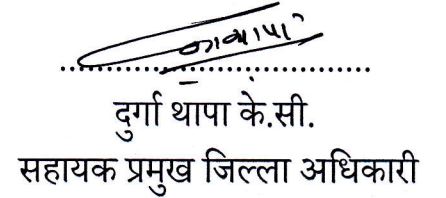 दुर्गा थापा के.सी.
सहायक प्रमुख जिल्ला अधिकारी